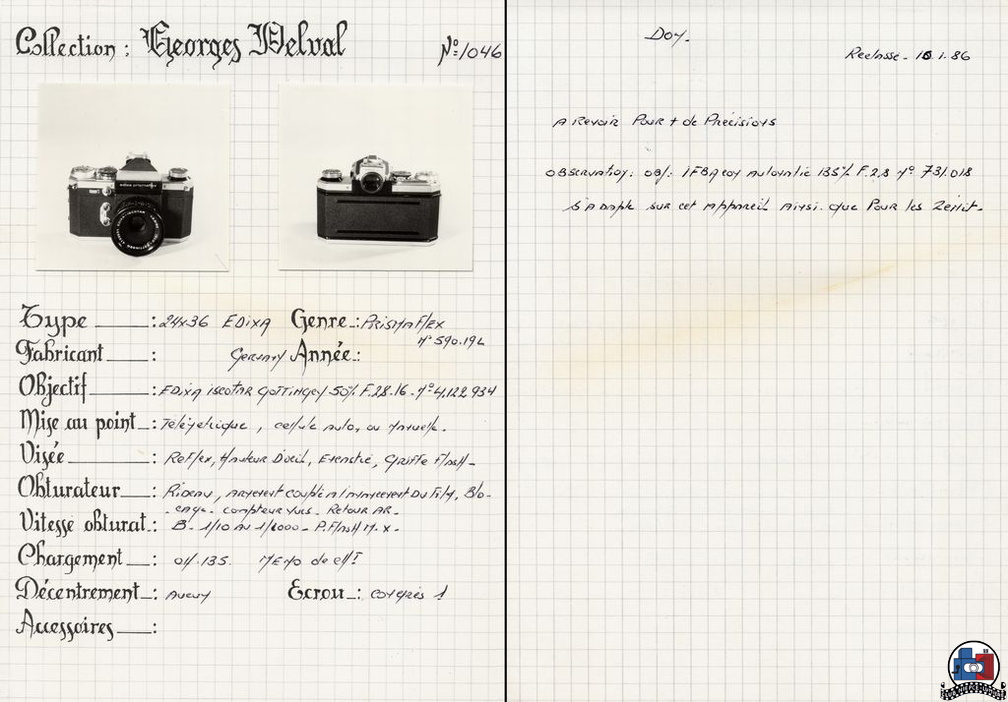 Collection : Georges Delval
N°:1046
Type : 24x36 EDixA Genre : PRismaFlex
n° 590.192
Fabricant : Germany Année :
Objectif : EDixA iscotar GöTTingen 50% F.2.8.16. n° 4,122,934
Mise au point : Télémétrique, cellule auto, ou manuelle.
Visée : Reflex, Hauteur D'œil, Griffe Flash-
Obturateur : Rideau, armement couplé à l'avancement Du Film, Blo-
-cage. compteur vues. Retour AR-
Vitesse obturat. : B- 1/10 Au 1/1000- P.Flash M.x-
Chargement : off.135. Mémo de eff!
Décentrement : Aucun Ecrou : congrès 1
Accessoires :
Don.
Reclassé - 10.1.86
A Revoir Pour + de Précisions
OBservation: OBj: Automatic 135% F.2.8 n° 731.018
S'Adapte sur cet Appareil Ainsi que Pour les Zenit-